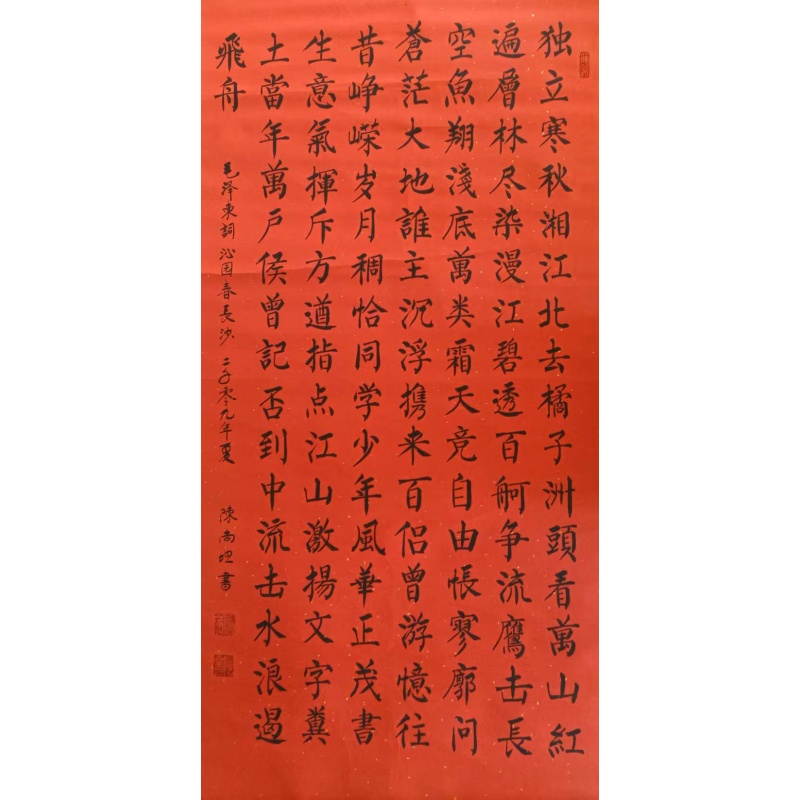 独立寒秋湘江北去橘子洲頭看萬山紅
遍層林尽染漫江碧透百舸争流鷹击長
空魚翔淺底萬类霜天竞自由怅寥廓问
蒼茫大地誰主沉浮携来百侣曾游憶往
昔峥嵘岁月稠恰同学少年風華正茂書
生意氣揮斥方遒指点江山激揚文字糞
土當年萬户侯曾記否到中流击水浪遏
飛舟
毛泽東詞沁园春長沙 二千零九年夏 陳尚 書